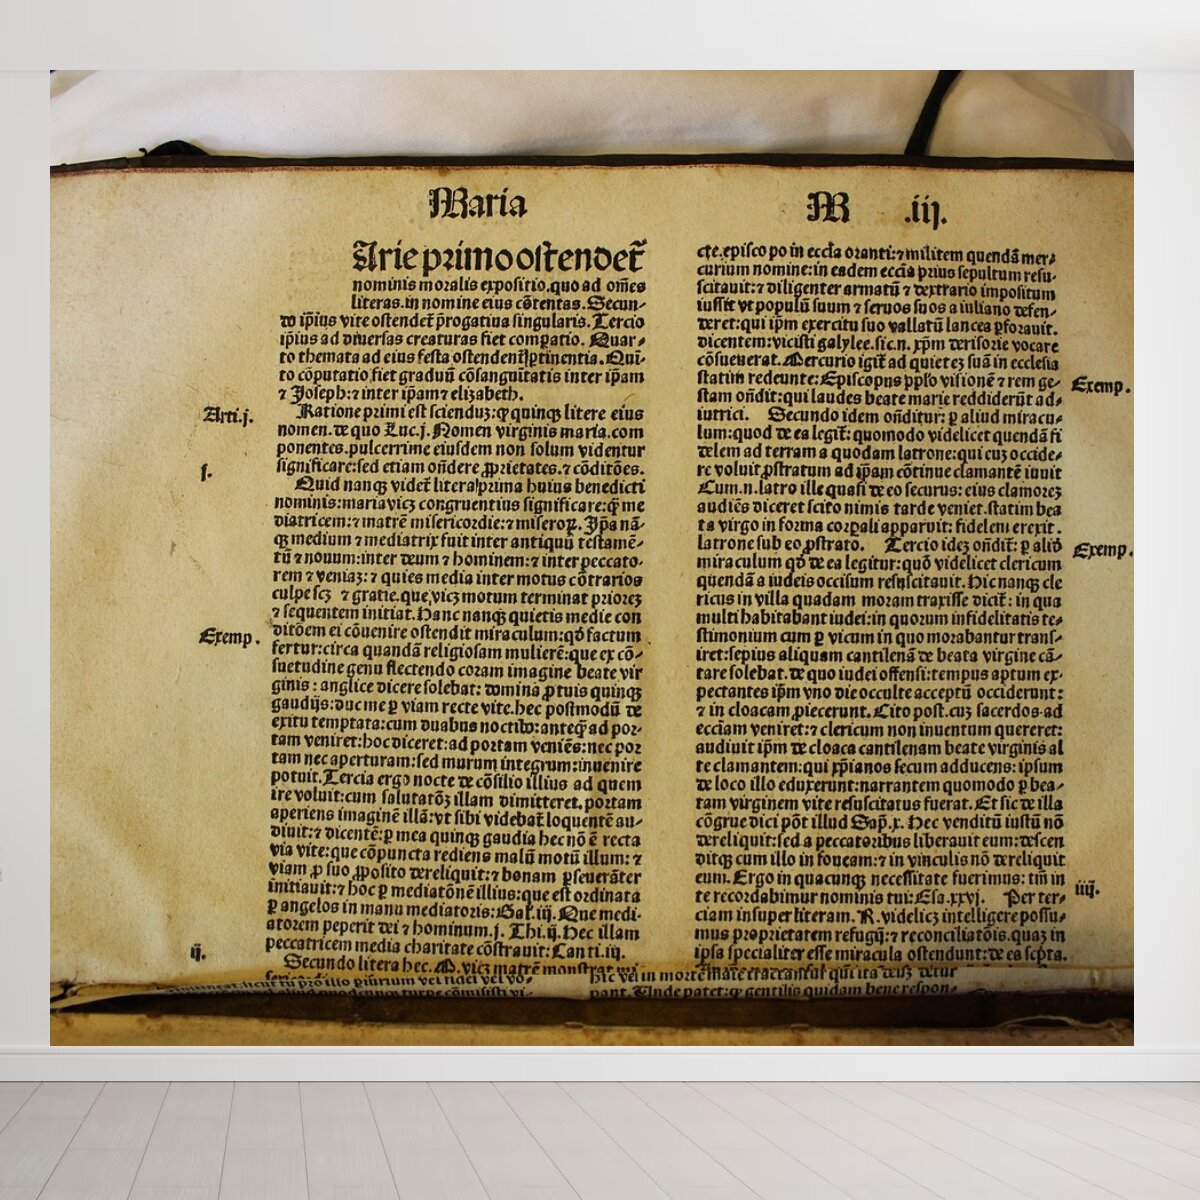 Maria
M .iij.
Arie primo ostendet̃
nominis moralis expositio.quo ad om̃es
literas.in nomine eius cõtentas.Secun-
do ip̃ius vite ostendet̃ p̃rogatiua singularis.Tercio
ip̃ius ad diuersas creaturas fiet comꝑatio. Quar-
to themata ad eius festa ostendent̃ ꝑtinentia. Qui-
to cõputatio fiet graduũ cõsanguĩtatis inter ip̃am
⁊ Joseph:⁊ inter ip̃am ⁊ elizabeth.
Arti.j.
Ratione primi est sciendũ:ꝙ quinqꝫ litere eius
nomen.de quo Luc.j.Nomen virginis maria.com
ponentes.pulcerrime eiusdem non solum videntur
significare:sed etiam oñdere ꝓprietates.⁊ cõditões.
j.
Quid nanqꝫ videt̃ litera prima huius benedicti
nominis:maria vicꝫ congruentius significare:ꝙ̃ me
diatricem:⁊ matrẽ misericordie:⁊ miseroꝝ. Ip̃a nã-
qꝫ medium ⁊ mediatrix fuit inter antiquũ testamẽ-
tũ ⁊ nouum:inter deum ⁊ hominem:⁊ inter peccato-
rem ⁊ veniaꝫ:⁊ quies media inter motus cõtrarios
culpe scꝫ ⁊ gratie.que vicꝫ motum terminat prioreꝫ
⁊ sequentem initiat.Hanc nanqꝫ quietis medie con
ditõem ei cõuenire ostendit miraculum:qð factum
Exemp.
fertur:circa quandã religiosam mulierẽ:que ex cõ-
suetudine genu flectendo coram imagine beate vir
ginis : anglice dicere solebat: domina ꝓ tuis quinqꝫ
gaudijs:duc me ꝑ viam recte vite.hec postmodũ de
exitu temptata:cum duabus noctibꝰ:anteqꝫ ad por-
tam veniret:hoc diceret:ad portam veniẽs:nec por
tam nec aperturam:sed murum integrum:inuenire
potuit.Tercia ergo nocte de cõsilio illius ad quem
ire voluit:cum salutatõꝫ illam dimitteret.portam
aperiens imaginẽ illã:vt sibi videbat̃ loquentẽ au-
diuit:⁊ dicentẽ:ꝑ mea quinqꝫ gaudia hec nõ ẽ recta
via vite:que cõpuncta rediens malũ motũ illum:⁊
viam ꝓ suo ꝓposito dereliquit:⁊ bonam ꝑseuerãter
initiauit:⁊ hoc ꝑ mediatõnẽ illius:que est ordinata
ꝑ angelos in manu mediatoris:Gal.iij.Que medi-
atorem peperit dei ⁊ hominum.j. Thi.ij.Hec illam
peccatricem media charitate cõstrauit:Canti.iij.
ij.
Secundo litera hec.M.vicꝫ matrẽ monstrat
cte.episcopo in eccl̃a oranti:⁊ militem quendã mer-
curium nomine:in eadem ecc̃ia prius sepultum resu-
scitauit:⁊ diligenter armatũ ⁊ dextrario impositum
iussit vt populũ suum ⁊ seruos suos a iuliano defen-
deret:qui ip̃m exercitu suo vallatũ lancea ꝑforauit.
dicentem:vicisti galylee.sic.n. xp̃m derisorie vocare
cõsueuerat.Mercurio igit̃ ad quieteꝫ suã in ecclesia
statim redeunte:Episcopus ꝓpl̃o visionẽ ⁊ rem ge-
Exemp.
stam oñdit:qui laudes beate marie reddiderũt ad-
iutrici. Secundo idem oñditur: ꝑ aliud miracu-
lum:quod de ea legit̃: quomodo videlicet quendã fi
delem ad terram a quodam latrone:qui cuꝫ occide-
re voluit ꝓstratum ad ip̃am cõtinue clamantẽ iuuit
Cum.n.latro ille quasi de eo securus: eius clamoreꝫ
audiẽs diceret scito nimis tarde veniet.statim bea
ta virgo in forma corꝑali apparuit: fidelem erexit.
latrone sub eo ꝓstrato. Tercio ideꝫ oñdit̃: ꝑ aliõ
Exemp.
miraculum qð de ea legitur:quõ videlicet clericum
quendã a iudeis occisum resuscitauit. Hic nanqꝫ cle
ricus in villa quadam moram traxisse dicit̃: in qua
multi habitabant iudei:in quorum infidelitatis te-
stimonium cum ꝑ vicum in quo morabantur trans-
iret:sepius aliquam cantilenã de beata virgine cã-
tare solebat.de quo iudei offensi:tempus aptum ex-
pectantes ip̃m vno die occulte acceptũ occiderunt:
⁊ in cloacam ꝓiecerunt. Cito post.cuꝫ sacerdos ad
ecc̃iam veniret:⁊ clericum non inuentum quereret:
audiuit ip̃m de cloaca cantilenam beate virginis al
te clamantem:qui xp̃ianos secum adducens: ipsum
de loco illo eduxerunt:narrantem quomodo ꝑ bea-
tam virginem vite resuscitatus fuerat. Et sic de illa
cõgrue dici põt illud Sap̃.x. Hec venditũ iustũ nõ
dereliquit:sed a peccatoribus liberauit eum:descen
ditqꝫ cum illo in foueam:⁊ in vinculis nõ dereliquit
eum. Ergo in quacunqꝫ necessitate fuerimus: tm̃ in
iiij.
te recordabimur nominis tui:Esa.xxvj. Per ter-
ciam insuper literam.R.videlicꝫ intelligere possu-
mus proprietatem refugij:⁊ reconciliatõis.quaꝫ in
ipsa specialiter esse miracula ostendunt:de ea sc̃pta.
pant. Unde patet:ꝙ gentilis quidam bene respon-